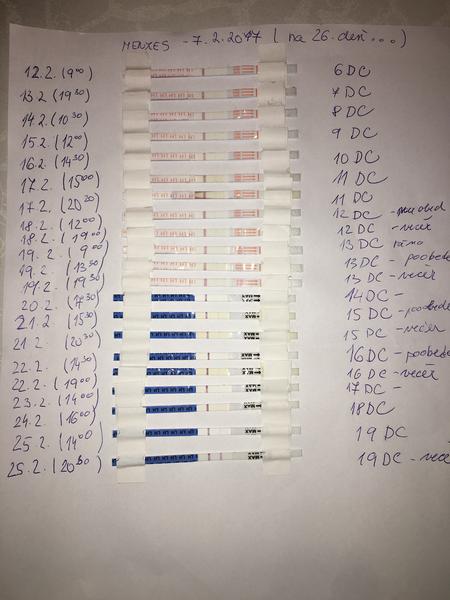 MENZES - 7.2.2017 ( na 26. deň ...)
12.2. (9⁰⁰) 6DC
13.2 (19³⁰) 7DC
14.2. (10³⁰) 8DC
15.2. (12⁰⁰) 9DC
16.2. (14³⁰) 10DC
17.2. (15⁰⁰) 11DC
17.2. (20²⁰) 11DC
18.2. (12⁰⁰) 12DC
18.2. (19⁰⁰) 12DC - večer
19.2. (9⁰⁰) 13DC ráno
19.2. (13³⁰) 13DC - poobede
19.2. (19³⁰) 13DC - večer
20.2. (17³⁰) 14DC -
21.2 (15³⁰) 15DC - poobede
21.2. (20³⁰) 15DC - večer
22.2. (14³⁰) 16DC - poobede
22.2. (19⁰⁰) 16DC - večer
23.2. (14⁰⁰) 17DC -
24.2. (16⁰⁰) 18DC
25.2. (14⁰⁰) 19DC
25.2. (20³⁰) 19DC - več